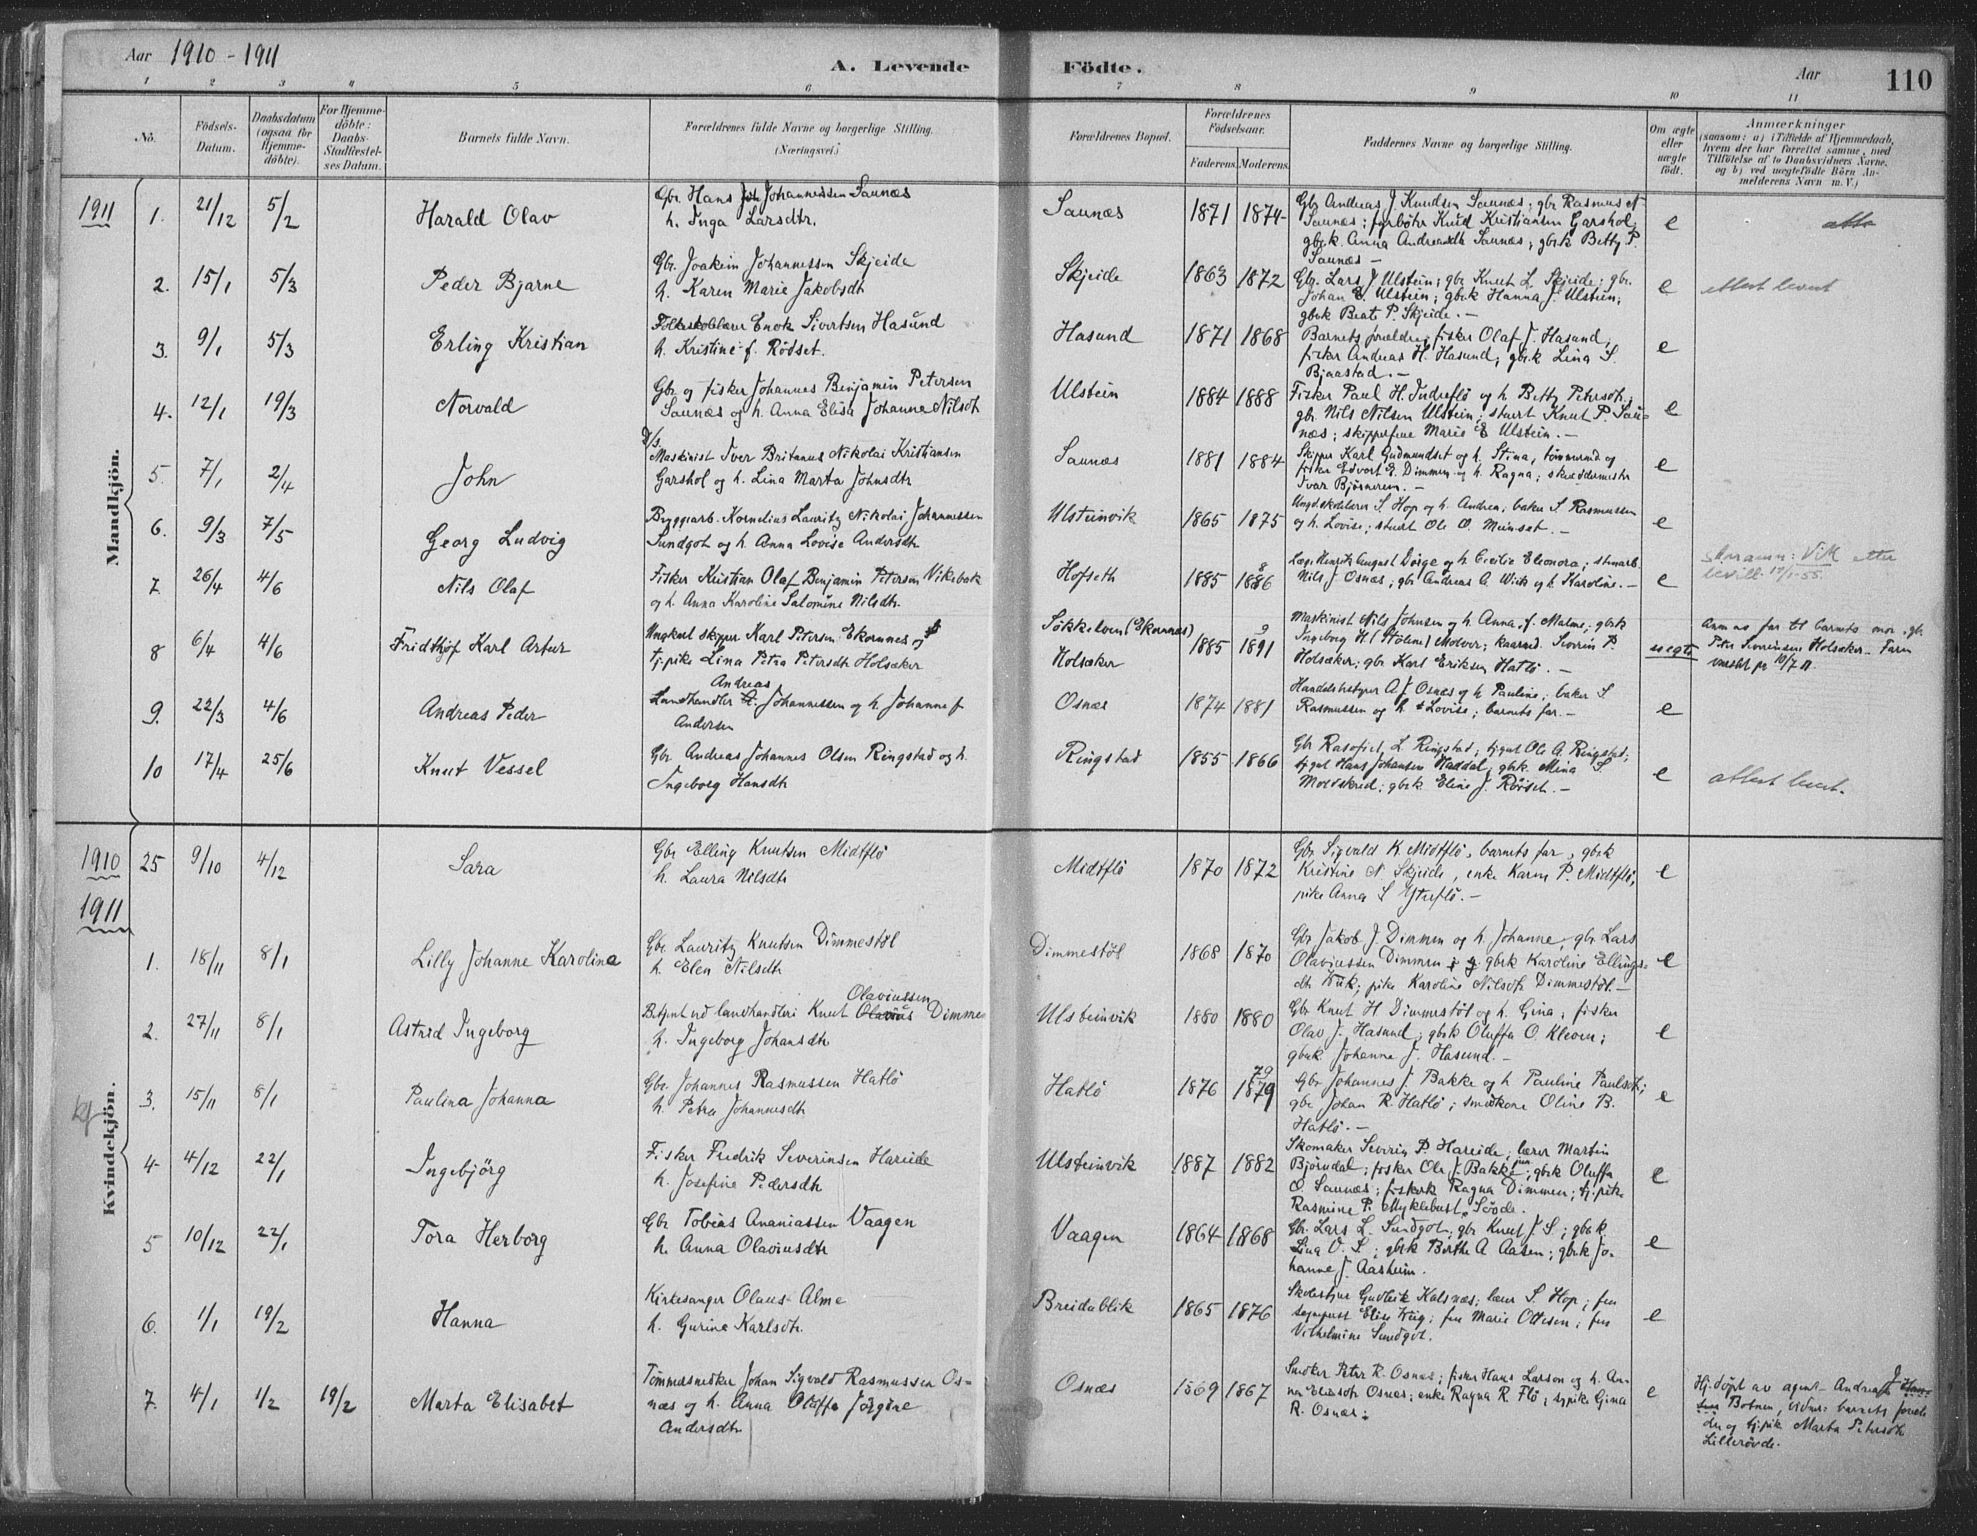 Aar 1910 - 1911
A. Levende Födte.
Aar 110
1 2 3 4 5 6 7 8 9 10 11
No.
Födsels-
Datum.
Daabsdatum
(ogsaa for
Hjemme-
döbte).
For Hjemme-
döbte:
Daabs-
Stadfæstel-
ses Datum.
Barnets fulde Navn.
Forældrenes fulde Navne og borgerlige Stilling.
(Næringsvei.)
Forældrenes Bopæl.
Forældrenes
Födselsaar.
Faderens. Moderens.
Faddernes Navne og borgerlige Stilling.
Om ægte
eller
uægte
födt.
Anmærkninger
(saasom: a) i Tilfælde af Hjemmedaab,
hvem der har forrettet samme, med
Tilföielse af to Daabsvidners Navne,
og b) ved uægtefödte Börn An-
melderens Navn m. V.)
Mandkjön.
1911 1. 21/12 5/2 Harald Olav
Gbr. Hans Johannessen Saunæs
h. Inga Larsdtr.
Saunæs 1871 1874
Gbr Andreas J. Knudsen Saunæs; gbr Rasmus N
Saunæs; fyrbøter Knud Kristiansen Garshol;
gbrk. Anna Andreasdtr Saunæs; gbrk Betty P.
Saunæs —
e
2. 15/1 5/3 Peder Bjarne
Gbr. Joakim Johannessen Skjeide
h. Karen Marie Jakobsdtr
Skjeide 1863 1872
Gbr. Lars J. Ulstein; gbr Knut L. Skjeide; gbr.
Johan E. Ulstein; gbrk Hanna J. Ulstein;
gbrk Beate P. Skjeide. —
e attest levert
3. 9/1 5/3 Erling Kristian
Folkeskolelærer Enok Sivertsen Hasund
h. Kristine f. Rödset.
Hasund 1871 1868
Barnets forældre; fisker Olaf J. Hasund,
fisker Andreas H. Hasund; gbrk Lina S.
Bjaastad. —
e
4. 12/1 19/3 Norvald
Gbr og fisker Johannes Benjamin Petersen
Saunæs og h. Anna Elisa Johanne Nilsdt
Ulstein 1884 1888
Fisker Paul H. Indreflö og h Betty Petersdt;
gbr. Nils Nilsen Ulstein; stuert Knut P. Sau-
næs; skipperfrue Marie E Ulstein. —
e
5. 7/1 2/4 John
D/s.
Maskinist Iver Britanus Nikolai Kristiansen
Garshol og h. Lina Marta Johnsdtr
Saunæs 1881 1884
Skipper Karl Gudmundset og h. Stina, tømmermd og
fisker Edvart E. Dimmen og h. Ragna; skræddermester
Ivar Bjørnerem. —
e
6. 9/3 7/5 Georg Ludvig
Bryggearb. Kornelius Lauritz Nikolai Johannessen
Sundgot og h. Anna Lovise Andersdtr
Ulsteinvik 1865 1875
Ungd.skolelærer S. Hop og h. Andrea; baker S. Rasmussen
og h. Lovise; stuert Ole O. Meinset. —
e
7. 26/4 4/6 Nils Olaf
Fisker Kristian Olaf Benjamin Petersen Vikebak
og h. Anna Karoline Salomine Nilsdtr.
Hofseth 1885 1886 8
Læge Henrik August Dörge og h Cecilie Eleonora; stenarb.
Nils J Osnæs; gbr Andreas A. Wiik og h Karoline. —
e
8 6/4 4/6 Fridthjof Karl Artur
Ungkarl skipper Karl Petersen Ekornnes og
tj.pike Lina Petra Petersdtr Holsæker
Søkkelven (Ekornnes)
Holsæker 1885 1891 9
Maskinist Nils Johnsen og h Anna f. Malme; gbrk
Ingeborg H. (Stölene) Molver; kaarmd. Severin P.
Holsæker; gbr Karl Eriksen Hatlö. —
uegte
Anm av far til barnets mor, gbr.
Peter Severinsen Holsæker. Faren
varslet pr 10/7 11.
9. 22/3 4/6 Andreas Peder
Andreas
Landhandler A. Johannessen og h. Johanne f
Andersen
Osnæs 1874 1881
Handelsbetyrer A J Osnæs og h Pauline; baker S
Rasmussen og h Lovise; barnets far. —
e
10 17/4 25/6 Knut Vessel
Gbr. Andreas Johannes Olsen Ringstad og h.
Ingeborg Hansdtr
Ringstad 1855 1866
tjgut Hans Johansen Haddal; gbrk. Mina S.
Moldskred; gbrk Eline J. Rörset. —
e attest levert.
Kvindekjön.
1910 25 9/10 4/12 Sara
Gbr Elling Knutsen Midtflö
h. Laura Nilsdtr
Midtflö 1870 1872
Gbr. Sigvald K Midtflö, barnets far, gbrk
Kristine N. Skjeide, enke Karen P. Midtflö,
pike Anna S Ytreflö. —
e
1911
1. 18/11 8/1 Lilly Johanne Karolina
Gbr. Lauritz Knutsen Dimmestöl
h. Elen Nilsdtr
Dimmestöl 1868 1870
Gbr Jakob J. Dimmen og h. Johanne, gbr. Lars
Olaviussen Dimmen; gbrk Karoline Ellings-
dtr Wiik; pike Karoline Nilsdtr Dimmestöl. —
e
2. 27/11 8/1 Astrid Ingeborg
Olaviussen
Betjent ved landhandleri Knut Olavius Dimmen
h. Ingeborg Johansdtr
Ulsteinvik 1880 1880
Gbr. Knut H Dimmestöl og h. Gina; fisker
Olav J. Hasund; gbrk Oluffa O. Kleven;
gbrk Johanne J. Hasund. —
e
3. 15/11 8/1 Paulina Johanna
Gbr. Johannes Rasmussen Hatlö
h. Petra Johannesdtr
Hatlö 1876 1879 79
Gbr Johannes J. Bakke og h Pauline Paulsdt;
gbr Johan R. Hatlö; smedkone Oline B.
Hatlö. —
e
4- 4/12 22/1 Ingebjörg
Fisker Fredrik Severinsen Hareide
h. Josefine Pedersdtr
Ulsteinvik 1887 1882
Skomaker Severin P. Hareide, lærer Martin
Björndal; fisker Ole J. Bakke jun; gbrk Oluffa
O. Saunæs; fiskerk Ragna Dimmen; tj.pike
Rasmine P. Myklebust, Søvde.
e
5 10/12 22/1 Tora Herborg
Gbr Tobias Ananiassen Vaagen
h. Anna Olaviusdtr
Vaagen 1864 1868
Gbr. Lars L. Sundgot, gbr Knut J. S; gbrk
Lina O. S; gbrk Berthe A Aasen; gbrk Jo-
hanne J. Aasheim.
e
6. 1/1 19/2 Hanna
Kirkesanger Olaus Alme
h. Gurine Karlsdtr.
Breidablik 1865 1876
Skolestyrer Gudleik Kalsnæs; lærer S. Hop; fru
Elise Krig; fru Marie Ottesen; fru
Vilhelmine Sundgot.
e
7. 4/1 1/2 19/2 Marta Elisabet
Tømmersnedker Johan Sigvald Rasmussen Os-
næs og h. Anna Oluffa Jørgine
Andersdtr
Osnæs 1869 1867
Snedker Peter R. Osnæs; fisker Hans Larsen og h. An-
na Eliasdtr Osnæs; enke Ragna R. Flö; tjpike Gina
R. Osnæs;
e
Hj.døpt av agent Andreas J
Botnen, vidner: barnets foræl-
dre og tj.pik Marta Petersdtr
Lillerövde.